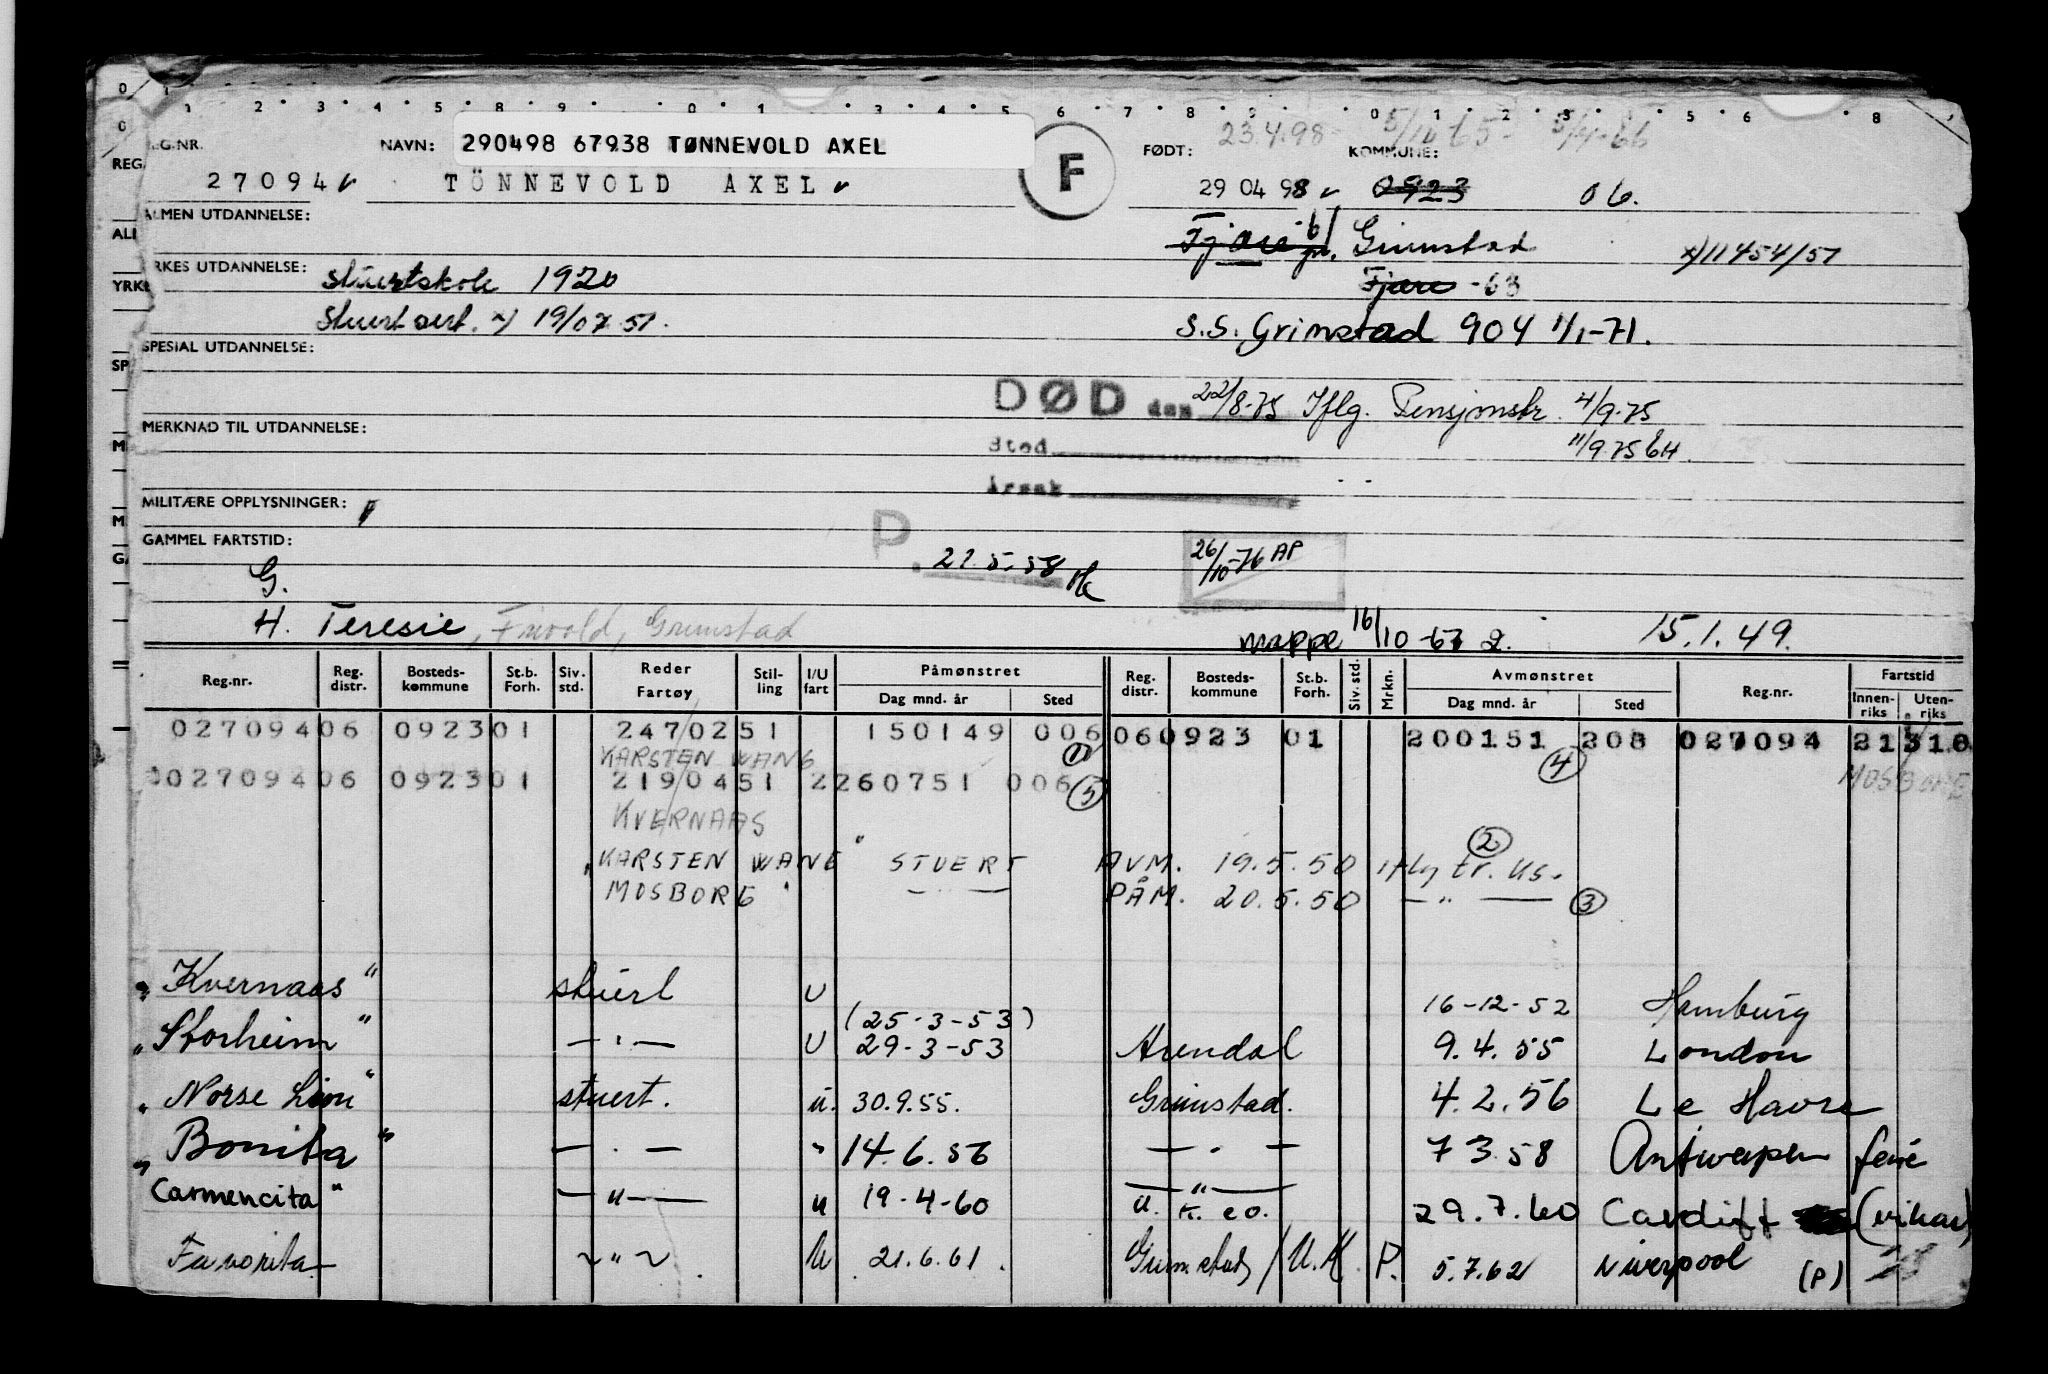 REG.NR. NAVN: 290498 67938 TØNNEVOLD AXEL F FØDT: 23.4.98 KOMMUNE: 5/10 65 - 5/4-66
27094 TÖNNEVOLD AXEL 29 04 98 0923 06.
ALMEN UTDANNELSE: Fjære Grimstad x)11454/51
YRKES UTDANNELSE: stuertskole 1920 Fjære -63
Stuert sert. x) 19/07.51. S.S. Grimstad 904 1/1-71.
SPESIAL UTDANNELSE:
DØD den 22/8-75 Iflg. Pensjonstr. 4/9-75
MERKNAD TIL UTDANNELSE: Sted 11/9.75 EH.
Årsak
MILITÆRE OPPLYSNINGER:
GAMMEL FARTSTID: P. 26/10-76 AP
G.
H. Teresie, Frivold, Grimstad mappe 16/10-67 15.1.49.
Reg.nr. Reg. distr. Bosteds-kommune St.b. Forh. Siv. std. Reder Fartøy Stil-ling I/U fart Påmønstret Dag mnd. år Sted Reg. distr. Bosteds-kommune St.b. Forh. Siv. std. Mrkn. Avmønstret Dag mnd. år Sted Reg.nr. Fartstid Innen-riks Uten-riks
027094 06 0923 01 24702 51 150149 006 06 0923 01 200151 208 027094 21
KARSTEN WANG 1 4
027094 06 0923 01 21904 51 2 260751 006 5 MOSBORG
KVERNAAS
"KARSTEN WANG" STUERT AVM. 19.5.50 iflg tr. us. 2
MOSBORG " — — PÅM. 20.5.50 — " — 3
"Kvernaas" stuert U 16-12-52 Hamburg
(25-3-53)
"Storheim" — " — U 29-3-53 Arendal 9.4.55 London
"Norse Lion" stuert. u. 30.9.55. Grimstad. 4.2.56 Le Havre
"Bonita" — . — " 14.6.56 — . — 7 3.58 Antwerpen ferie
Carmencita" — " — u 19-4-60 — " — u. k. co. 29.7.60 Cardiff (vikar)
Favorita ~ " ~ U 21.6.61. Grimstad / U.K P. 5.7.62 Liverpool (P)